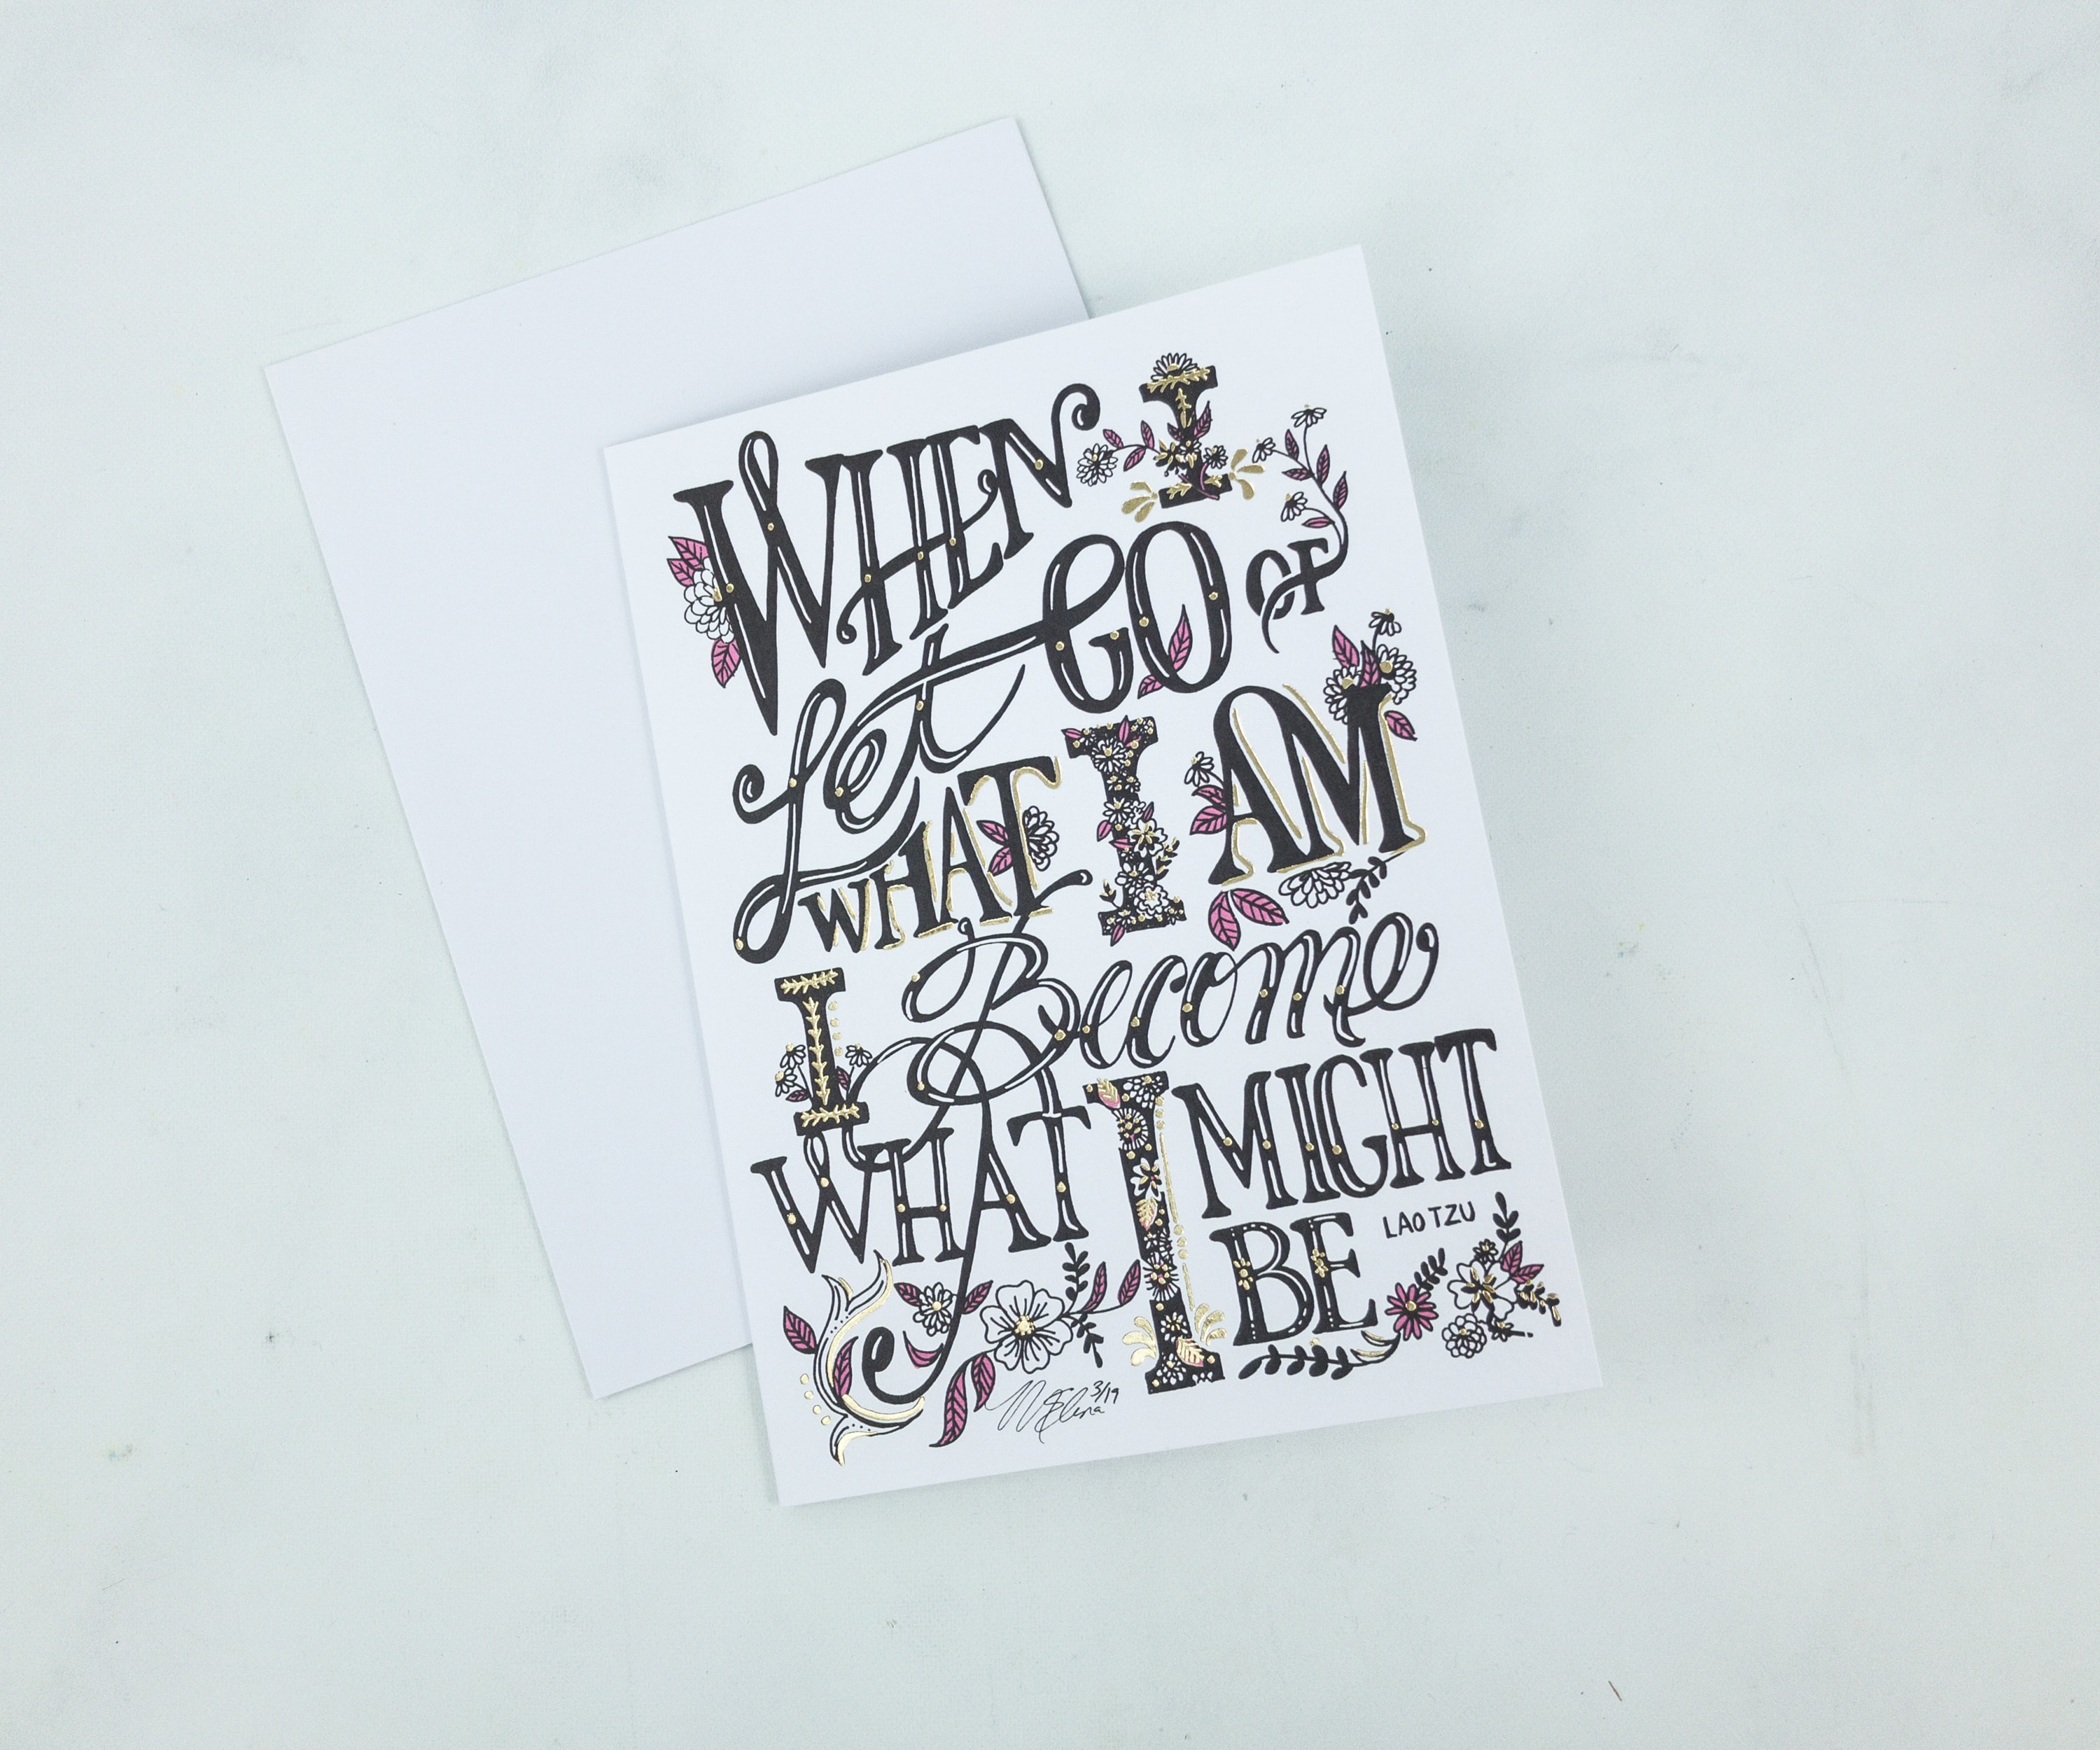 WHEN I
Let GO OF
WHAT I AM
I Become
WHAT I MIGHT
BE LAO TZU
3/19